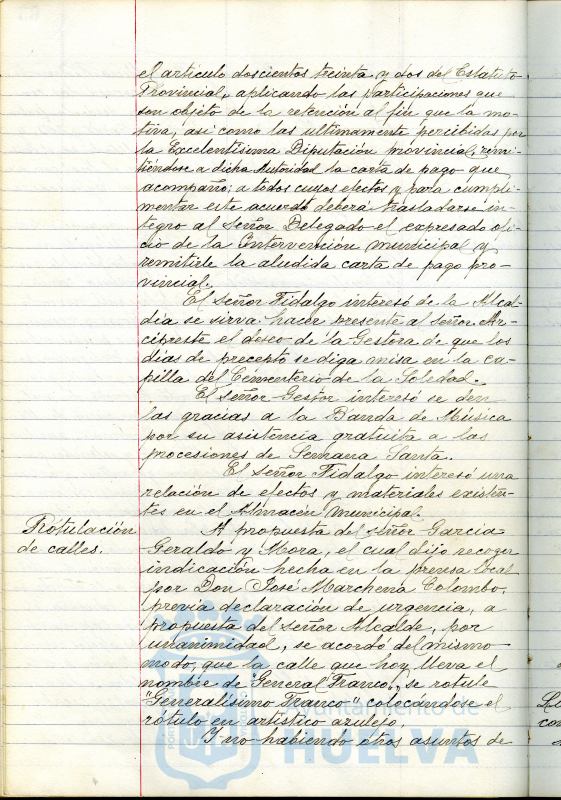 el artículo doscientos treinta y dos del Estatuto
Provincial, aplicando las participaciones que
son objeto de la retención al fin que la mo-
tiva, así como las ultimamente percibidas por
la Excelentísima Diputación provincial, remi-
tiéndose a dicha Autoridad la carta de pago que
acompaño; a todos cuyos efectos y para cumpli-
mentar este acuerdo deberá trasladarse ín-
tegro al Señor Delegado el expresado ofi-
cio de la Intervención municipal y
remitirle la aludida carta de pago pro-
vincial.
El Señor Fidalgo interesó de la Alcal-
día se sirva hacer presente al Señor Ar-
cipreste el deseo de la Gestora de que los
días de precepto se diga misa en la ca-
pilla del Cementerio de la Soledad.
El Señor Gestor interesó se den
las gracias a la Banda de Música
por su asistencia gratuita a las
procesiones de Semana Santa.
El Señor Fidalgo interesó una
relación de efectos y materiales existen-
tes en el Almacén Municipal.
Rotulación
de calles.
A propuesta del Señor García
Geraldo y Mora, el cual dijo recoger
indicación hecha en la prensa local
por Don José Marchena Colombo,
previa declaración de urgencia, a
propuesta del Señor Alcalde, por
unanimidad, se acordó del mismo
modo, que la calle que hoy lleva el
nombre de "General Franco", se rotule
"Generalísimo Franco" colocándose el
rótulo en artístico azulejo.
Y no habiendo otros asuntos de
Ayuntamiento de
HUELVA